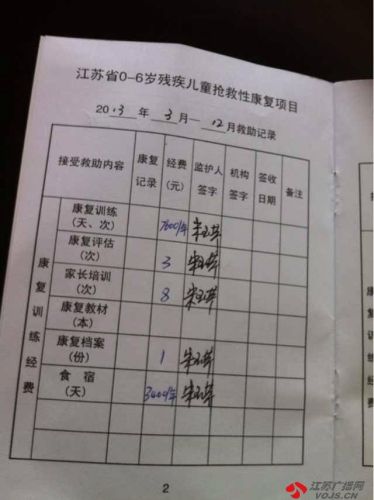 江苏省0-6岁残疾儿童抢救性康复项目
2013 年 3 月— 12 月救助记录
接受救助内容 康复记录 经费(元) 监护人签字 机构签字 签收日期 备注
康复训练经费
康复训练(天、次) 7600/年
康复评估(次) 3
家长培训(次) 8
康复教材(本)
康复档案(份) 1
食 宿(天) 3400/年
2
江苏广播网
VOJS.CN